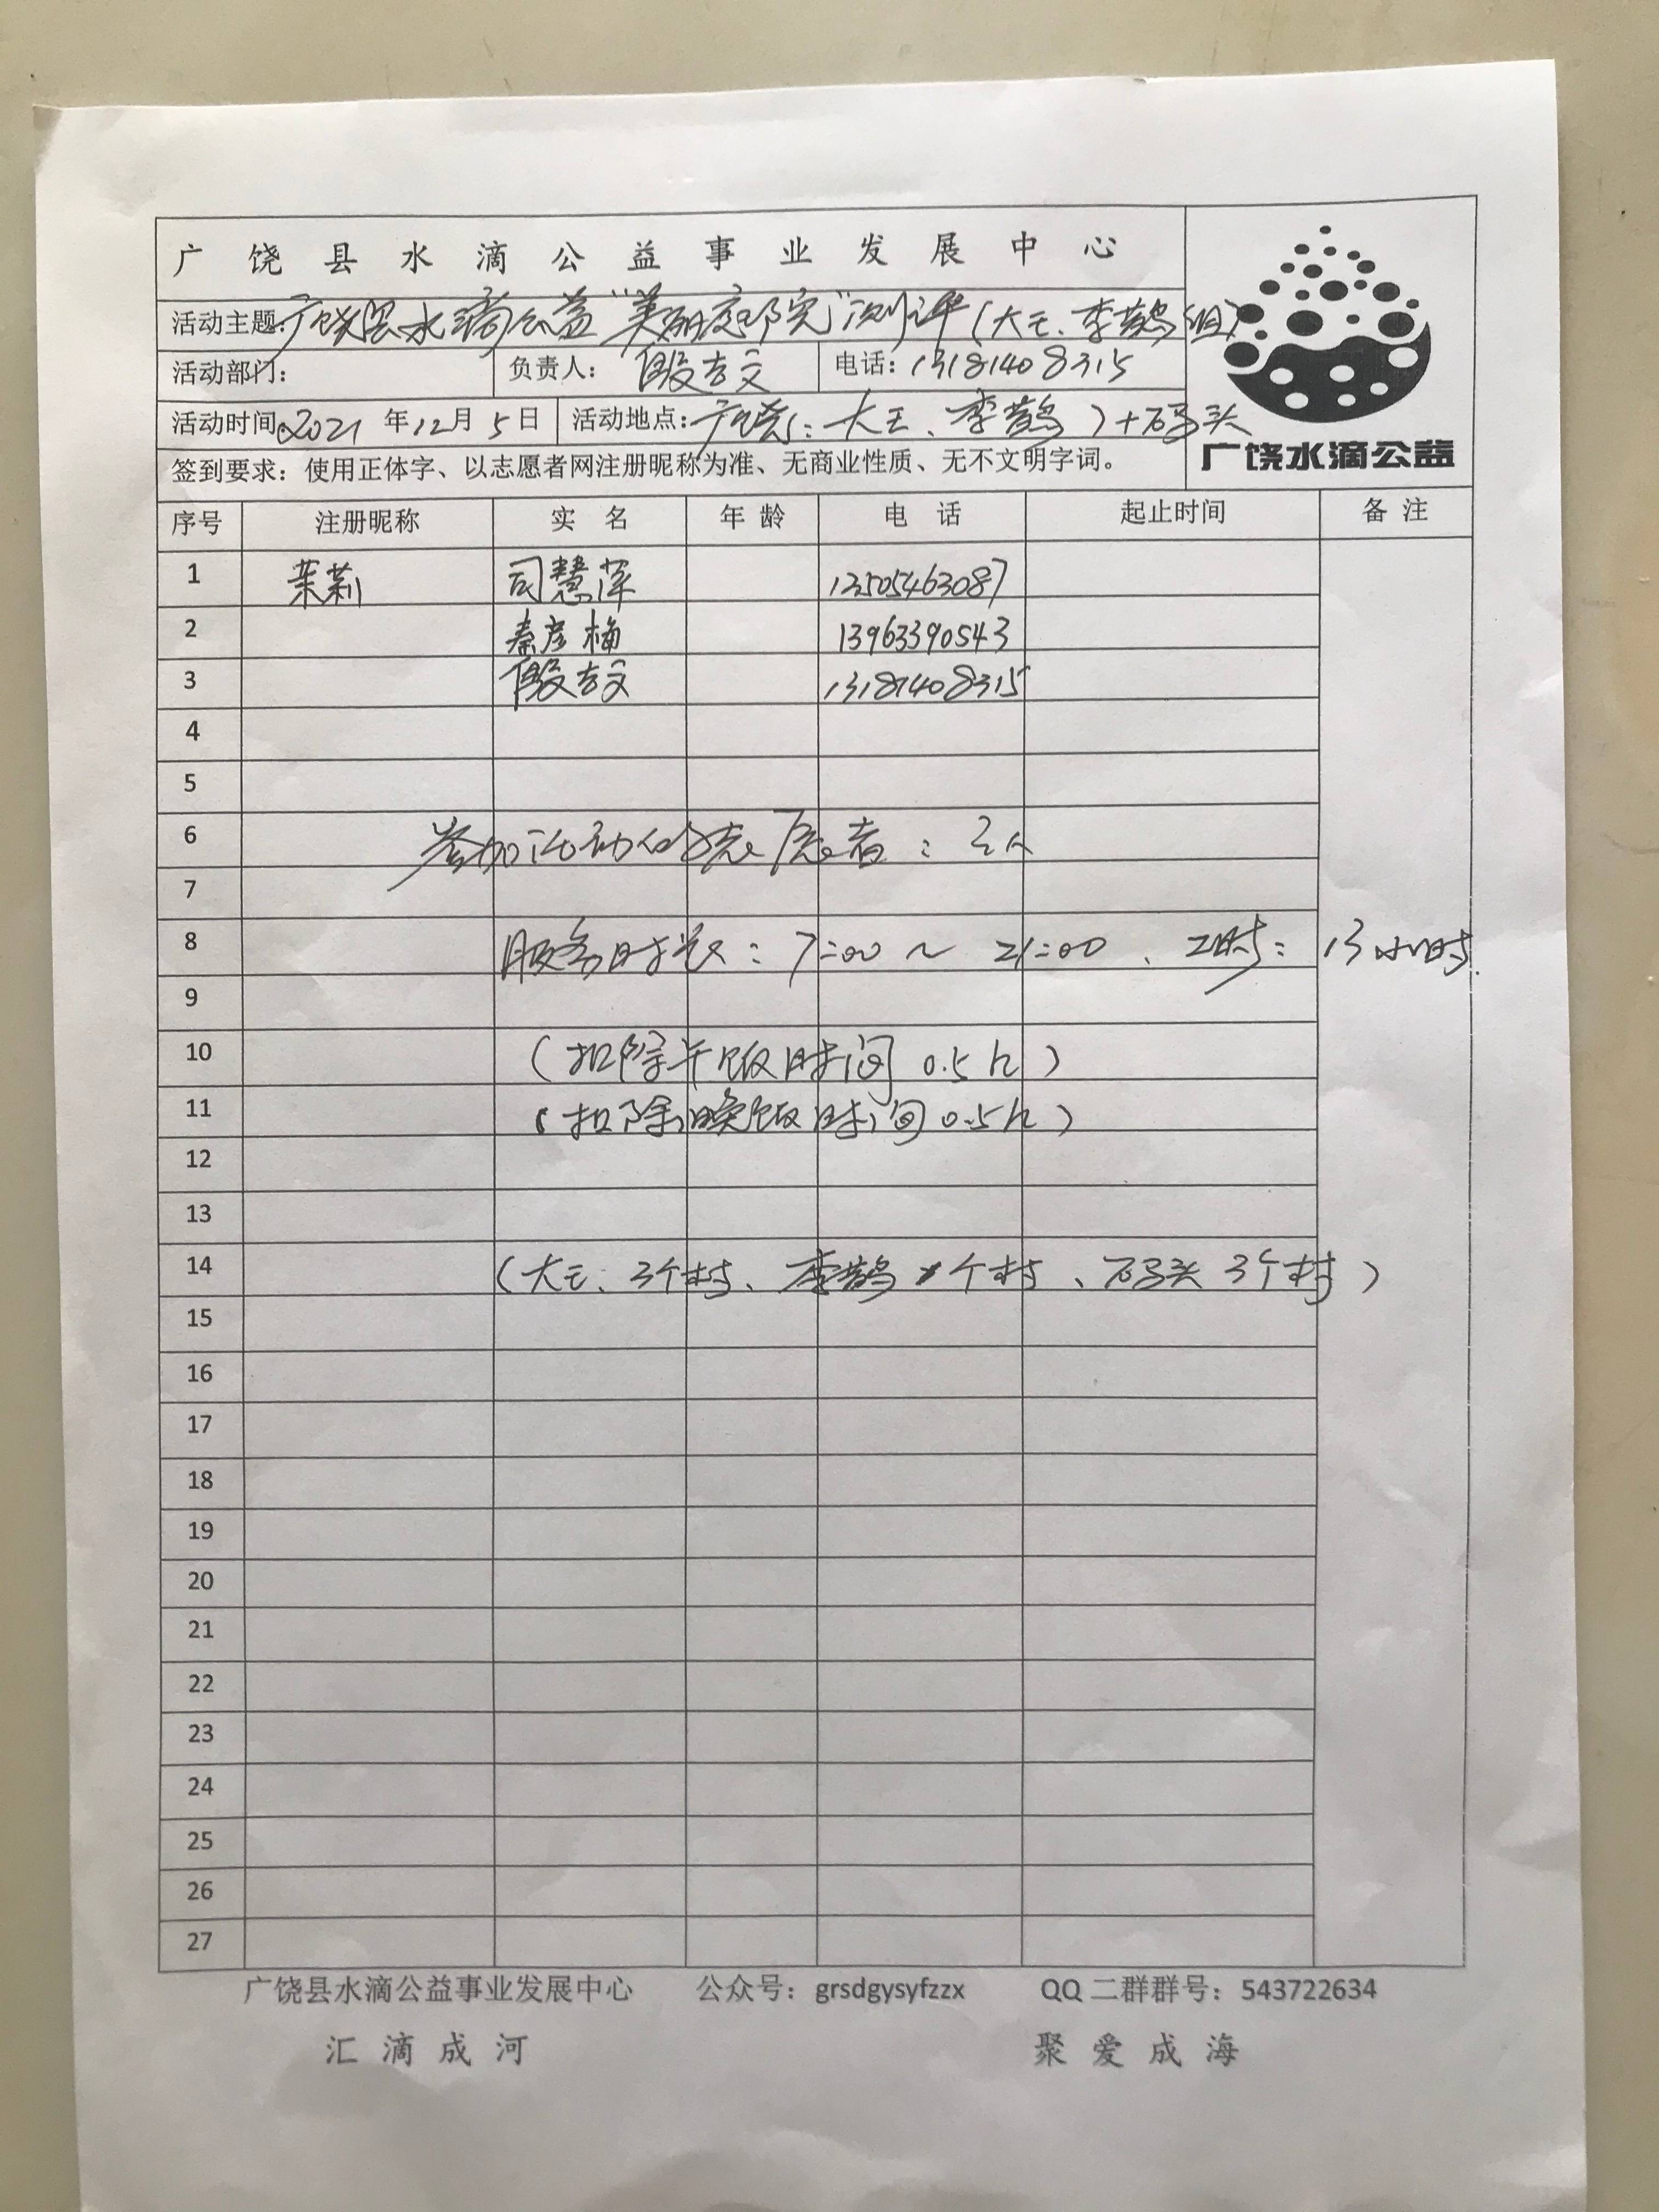 广饶县水滴公益事业发展中心
活动主题：广饶县水滴公益“美丽庭院”测评（大王、李鹊组）
活动部门： 负责人： 电话：13181408315
活动时间：2021年12月5日 活动地点：广饶（：大王、李鹊）+码头
广饶水滴公益
签到要求：使用正体字、以志愿者网注册昵称为准、无商业性质、无不文明字词。
序号 注册昵称 实名 年龄 电话 起止时间 备注
1 茉莉 司慧萍 13505463087
2 秦彦梅 13963390543
3 13181408315
4
5
6 参加活动的志愿者：3人
7
8 服务时长：7:00～21:00、工时：13小时.
9
10 （扣除午饭时间0.5h）
11 （扣除晚饭时间0.5h）
12
13
14 （大王、3个村、李鹊 个村、码头3个村）
15
16
17
18
19
20
21
22
23
24
25
26
27
广饶县水滴公益事业发展中心 公众号：grsdgysyfzzx QQ二群群号：543722634
汇滴成河 聚爱成海